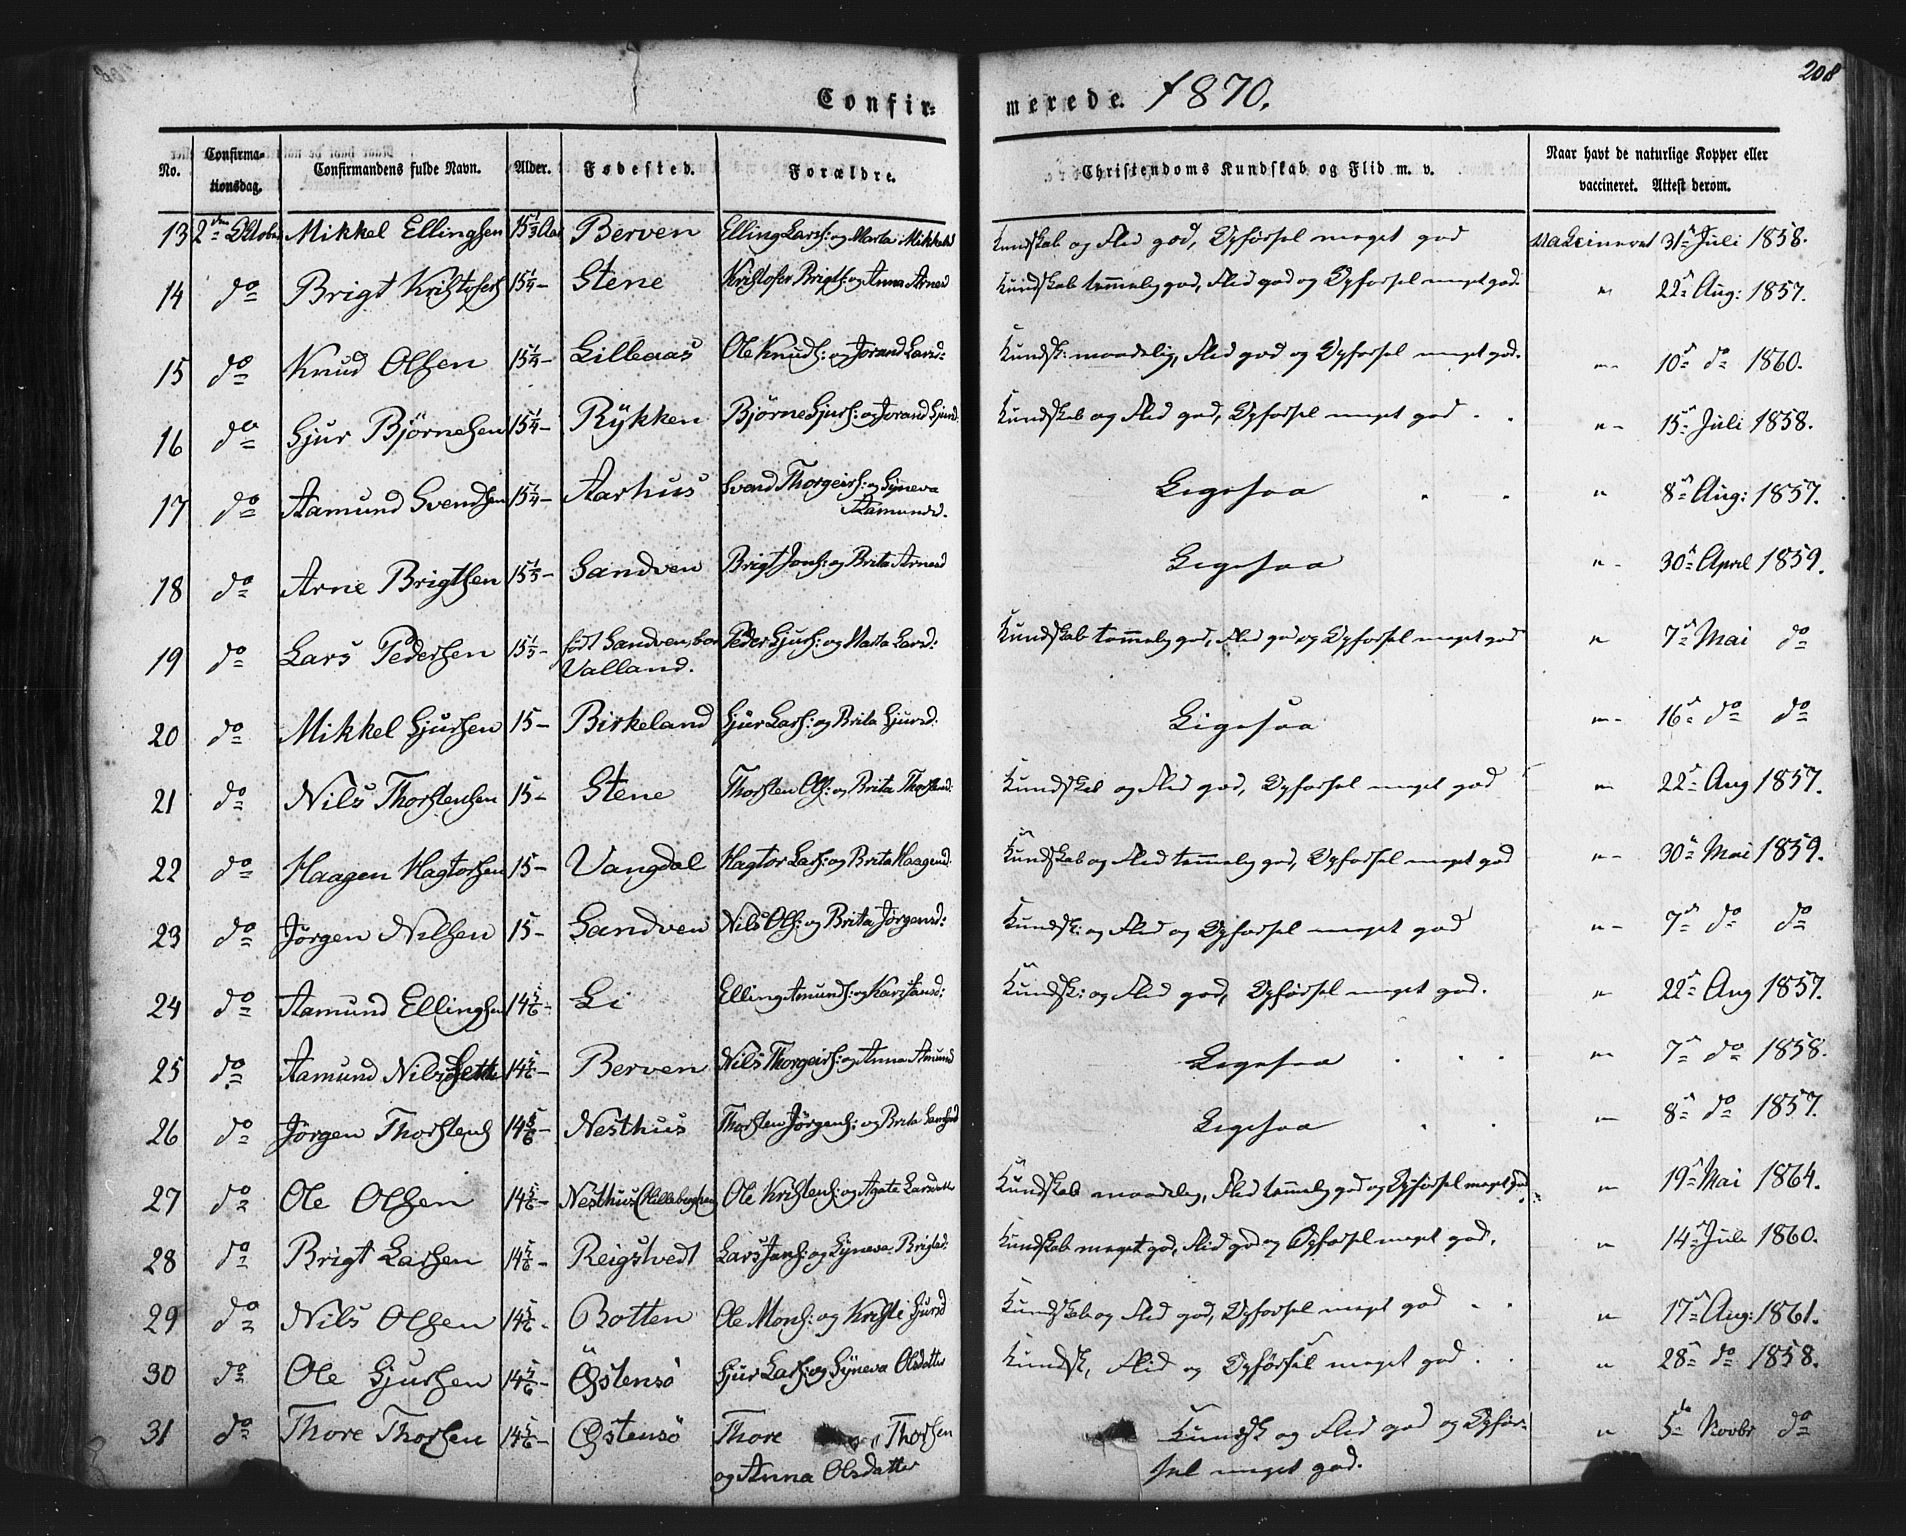 208
Confir= merede. 1870.
No. Confirma-tionsdag. Confirmandens fulde Navn. Alder. Fødested. Forældre. Christendoms Kundskab og Flid m. v. Naar havt de naturlige Kopper eller vaccineret. Attest derom.
13 2den Oktober Mikkel Ellingsen 15 1/3 Aar Berven Elling Larss: og Marta Mikkelsd Kundskab og Flid god, Opførsel meget god Vaksineret 31te Juli 1858.
14 do Brigt Kristofers 15 1/4 – Stene Kristofer Brigts: og Anna Arnesd Kundskab temmelig god, Flid god og Opførsel meget god. " 22de Aug: 1857.
15 do Knud Olsen 15 1/4 – Lillaas Ole Knuds: og Jorand Larsd: Kundsk: maadelig, Flid god og Opførsel meget god. " 10de do 1860.
16 do Sjur Bjørnesen 15 1/4 – Rykken Bjørne Sjurs: og Jorand Sjursd. Kundskab og Flid god, Opførsel meget god " 15de Juli 1858.
17 do Aamund Svendsen 15 1/4 – Aarhus Svend Thorgeirs: og Syneva Aamundsd. Ligesaa " 8de Aug: 1857.
18 do Arne Brigtsen 15 1/3 – Sandven Brigt Jons: og Brita Arnesd Ligesaa " 30te April 1859.
19 do Lars Pedersen 15 1/3 – født Sandven, bor Valland. Peder Sjurs: og Marta Larsd: Kundskab temmelig god, Flid god og Opførsel meget god " 7de Mai do
20 do Mikkel Sjursen 15 – Birkeland Sjur Lars: og Brita Sjursd: Ligesaa " 16de do do
21 do Nils Thorstensen 15 – Stene Thorsten Ols: og Brita Thorstensd: Kundskab og Flid god, Opførsel meget god " 22de Aug 1857.
22 do Haagen Hagtorsen 15 – Vangdal Hagtor Lars: og Brita Haagensd. Kundskab og Flid temmelig god, Opførsel meget god " 30te Mai 1859.
23 do Jørgen Nilsen 15 – Sandven Nils Ols: og Brita Jørgensd: Kundsk: og Flid og Opførsel meget god " 7de do do
24 do Aamund Ellingsen 14 5/6 – Li Elling Amunds: og Kari Kundsk: og Flid god, Opførsel meget god. " 22de Aug 1857.
25 do Aamund Nils 14 5/6 – Berven Nils Thorgeirs: og Anna Amund Ligesaa " 7de do 1858.
26 do Jørgen Thorstens 14 5/6 – Nesthus Thorsten Jørgens: og Brita Ligesaa " 8de do 1857.
27 do Ole Olsen 14 5/6 – Nesthus Ole Kristens: og Agata Larsdatter Kundskab maadelig, Flid temmelig god og Opførsel meget god " 19de Mai 1864.
28 do Brigt Larsen 14 5/6 – Reigstvedt Lars Jons: og Syneva Brigtsd: Kundskab meget god, Flid god og Opførsel meget god, " 14de Juli 1860.
29 do Nils Olsen 14 5/6 – Botten Ole Mons: og Kristi Sjursd Kundskab og Flid god, Opførsel meget god " 17de Aug: 1861.
30 do Ole Sjursen 14 5/6 – Østensø Sjur Lars: og Syneva Olsdatter Kundsk, Flid og Opførsel meget god " 28de do 1858.
31 do Thore Thorsen 14 5/6 – Østensø Thore Thorsen og Anna Olsdatter Kundsk og Flid god og Opførsel meget god. " 5te Novbr do